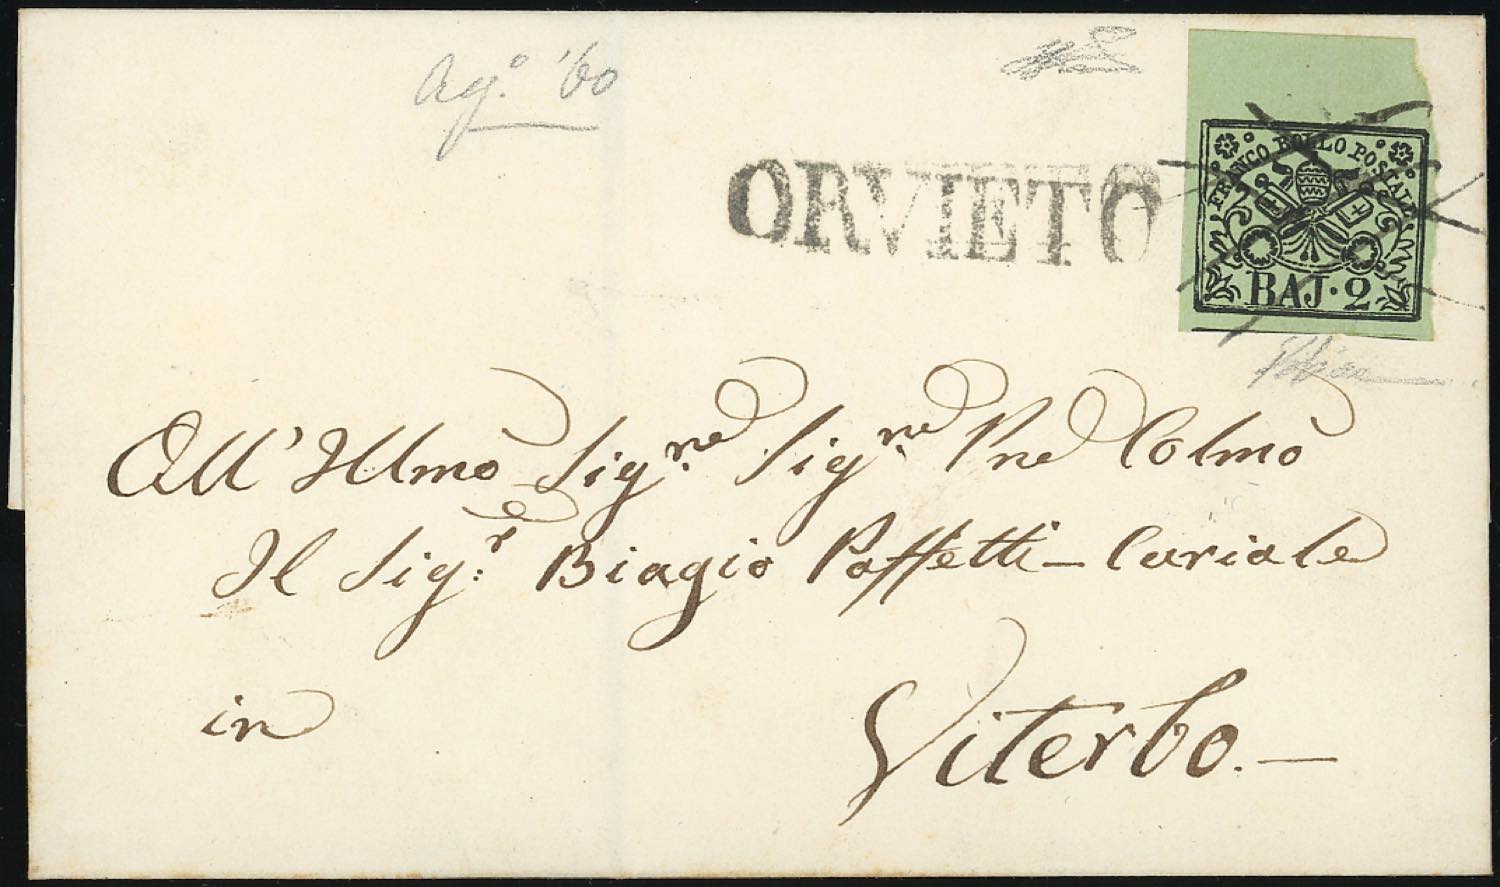 Ag.º '60
ORVIETO
FRANCO BOLLO POSTALE
BAJ·2
All' Illmo Sig.re Sig.re Pne Colmo
Il Sig.r Biagio Paffetti - Curiale
in
Viterbo. -